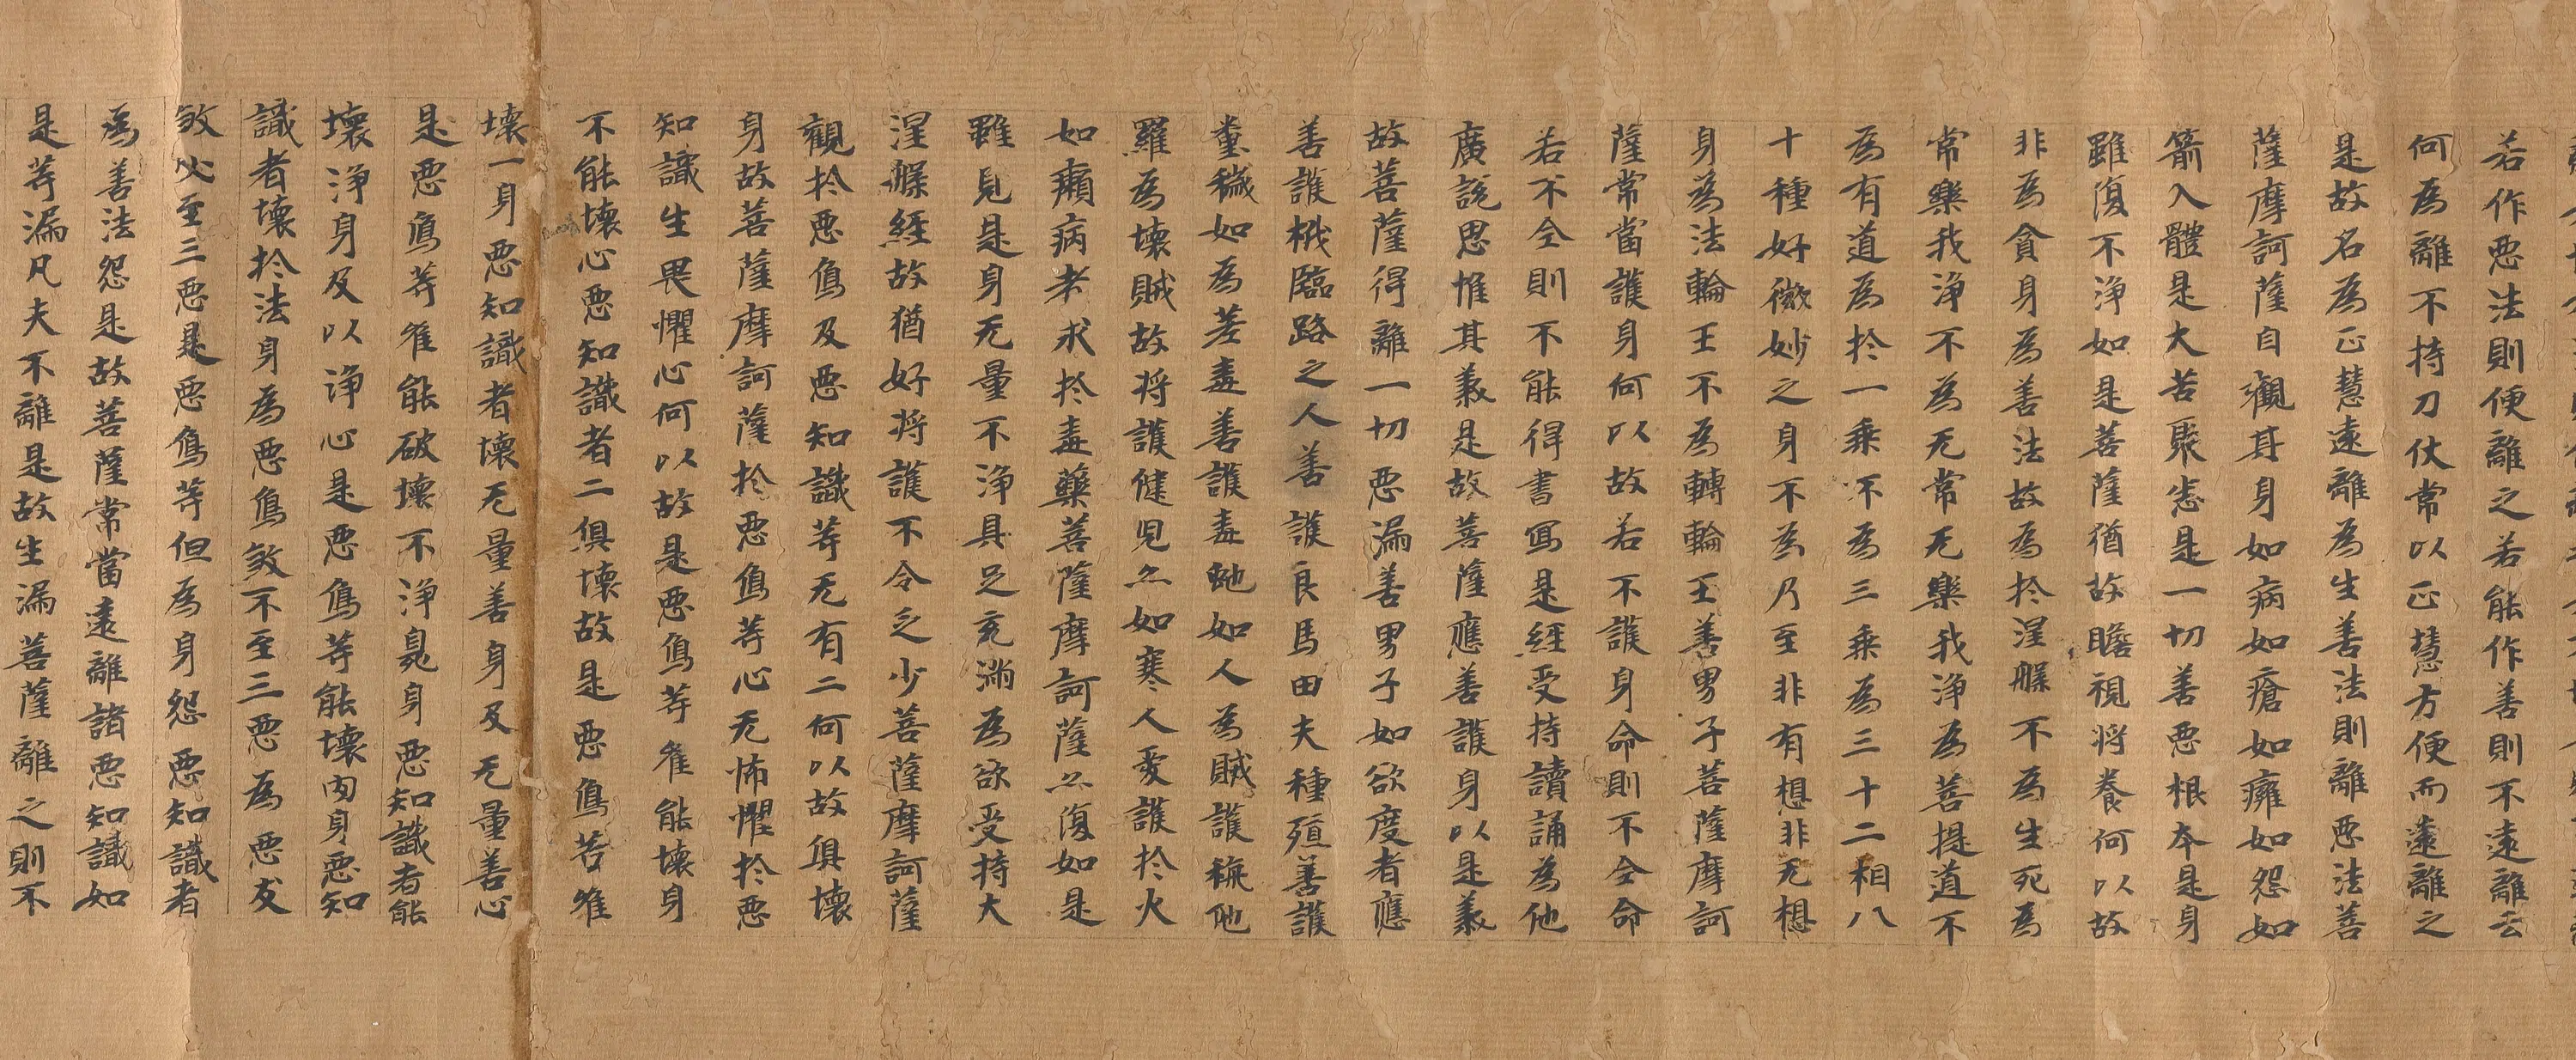 若作惡法則便離之若能作善則不遠離云
何為離不持刀仗常以正慧方便而遠離之
是故名為正慧遠離為生善法則離惡法菩
薩摩訶薩自觀其身如病如瘡如癰如怨如
箭入體是大苦聚悉是一切善惡根本是身
雖復不淨如是菩薩猶故瞻視將養何以故
非為貪身為善法故為於涅槃不為生死為
常樂我淨不為无常无樂我淨為菩提道不
為有道為於一乘不為三乘為三十二相八
十種好微妙之身不為乃至非有想非无想
身為法輪王不為轉輪王善男子菩薩摩訶
薩常當護身何以故若不護身命則不全命
若不全則不能得書寫是經受持讀誦為他
廣說思惟其義是故菩薩應善護身以是義
故菩薩得離一切惡漏善男子如欲度者應
善護栰臨路之人善護良馬田夫種殖善護
糞穢如為差毒善護毒虵如人為賊護旃他
羅為壞賊故將護健兒亦如寒人愛護於火
如癩病者求於毒藥菩薩摩訶薩亦復如是
雖見是身无量不淨具足充滿為欲受持大
涅槃經故猶好將護不令乏少菩薩摩訶薩
觀於惡鳥及惡知識等无有二何以故俱壞
身故菩薩摩訶薩於惡鳥等心无怖懼於惡
知識生畏懼心何以故是惡鳥等唯能壞身
不能壞心惡知識者二俱壞故是惡鳥等唯
壞一身惡知識者壞无量善身及无量善心
是惡鳥等唯能破壞不淨臭身惡知識者能
壞淨身及以淨心是惡鳥等能壞肉身惡知
識者壞於法身為惡鳥煞不至三惡為惡友
煞必至三惡是惡鳥等但為身怨惡知識者
為善法怨是故菩薩常當遠離諸惡知識如
是等漏凡夫不離是故生漏菩薩離之則不